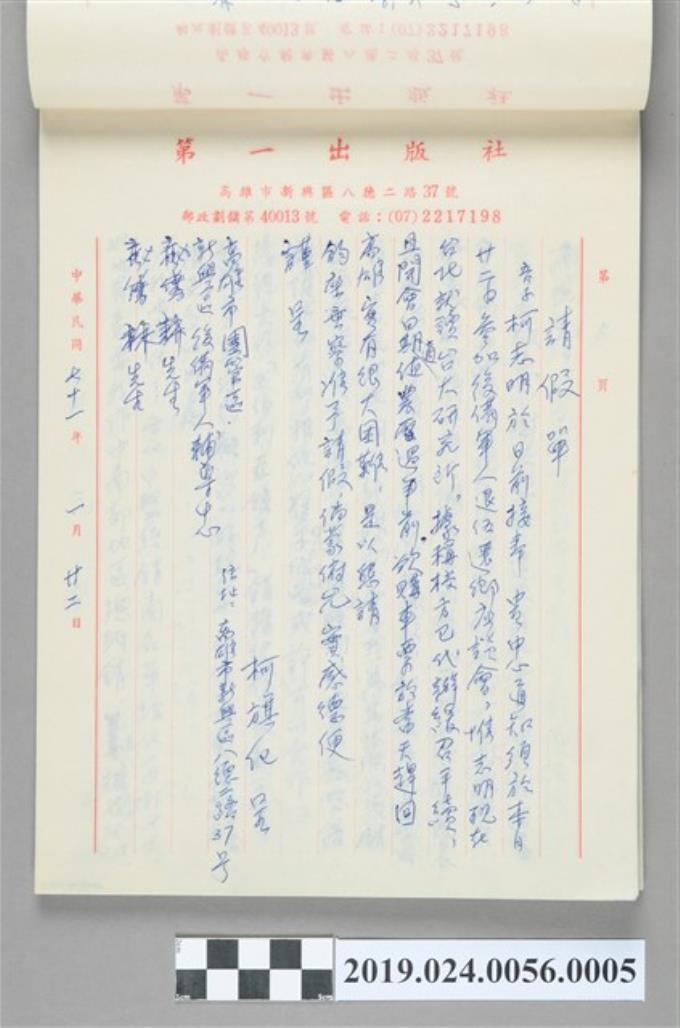 第一出版社
高雄市新興區八德二路37號
郵政劃儲第40013號 電話:(07)2217198
第 頁
請假單
吾子柯志明於日前接奉 貴中心通知須於本月
廿二日參加後備軍人退伍還鄉座談會,惟志明現在
台北就讀台大研究所,據稱校方已代辦緩召手續,
且開會日期適值農曆過年前,欲購車票於當天趕回
高雄實有很大困難,是以懇請
鈞座垂察准予請假,倘蒙俯允實感德便
謹 呈
高雄市團管區
新興區後備軍人輔導中心
柯旗化 呈
住址:高雄市新興區八德二路37号
先生
先生
中華民國七十一年一月廿二日
2019.024.0056.0005